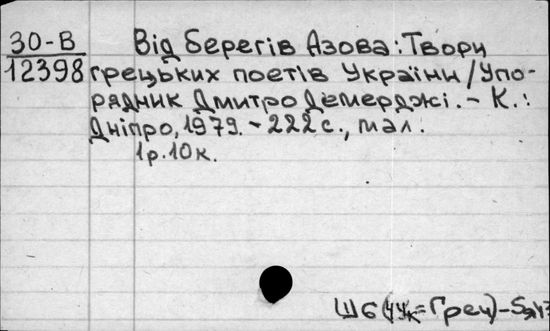 30-В
12398
Від берегів Азова: Твори
грецьких поетів України/Упо-
рядник Дмитро Демерджі. – К.:
Дніпро, 1979. – 222 с., мал.
1р. 10к.
Ш6(4Ук=Греч)–5